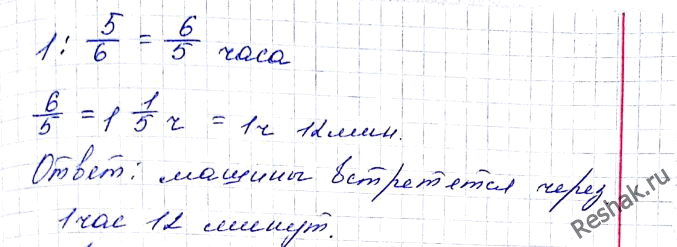 1 : 5/6 = 6/5 часа
6/5 = 1 1/5 ч = 1ч 12мин.
Ответ: машины встретется через
1час 12 минут.
Reshak.ru